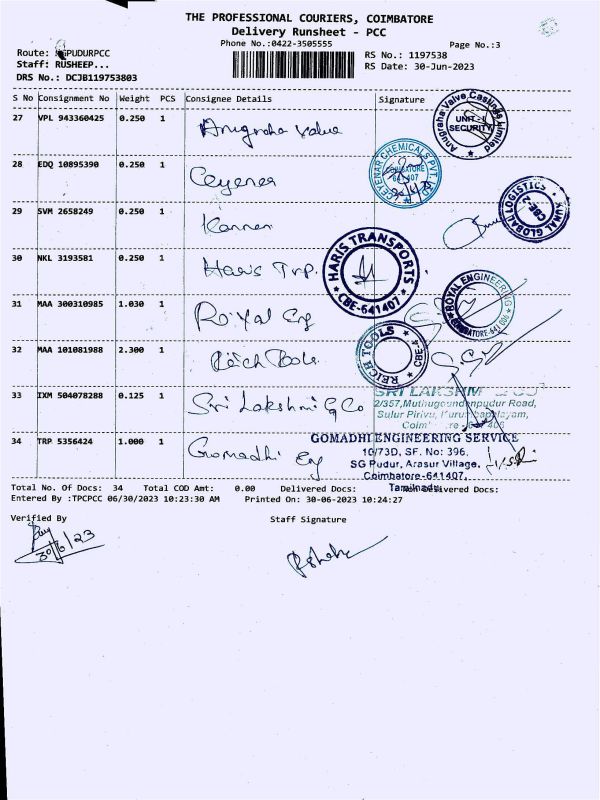 THE PROFESSIONAL COURIERS, COIMBATORE
Delivery Runsheet - PCC
Phone No.:0422-3505555
Page No.:3
Route: PUDURPCC
Staff: RUSHEEP...
DRS No.: DCJB119753803
RS No.: 1197538
RS Date: 30-Jun-2023
S No Consignment No Weight PCS Consignee Details Signature
27 VPL 943360425 0.250 1 Anugraha Valve
Anugraha Valve Castings Limited
UNIT-I
SECURITY
28 EDQ 10895390 0.250 1 Ceyenar
CEYENAR CHEMICALS PVT. LTD
COIMBATORE
641407
29 SVM 2658249 0.250 1 Kannan
GLOBAL LOGISTICS
CBE-2
30 NKL 3193581 0.250 1 Haris Trp.
HARIS TRANSPORTS
CBE-641407
31 MAA 300310985 1.030 1 Royal Eng
ROYAL ENGINEERING
COIMBATORE-641
32 MAA 101081988 2.300 1 Reich Tools
REICH TOOLS
CBE-4
33 IXM 504078288 0.125 1 Sri Lakshmi & Co
SRI LAKSHMI & CO
2/357,Muthugoundenpudur Road,
Sulur Pirivu, Kurumbapalayam,
34 TRP 5356424 1.000 1 Gomadhi Eng
GOMADHI ENGINEERING SERVICE
10/73D, SF. No: 396,
SG Pudur, Arasur Village,
Coimbatore-641407,
Tamilnadu
Total No. Of Docs: 34 Total COD Amt: 0.00 Delivered Docs: Non Delivered Docs:
Entered By :TPCPCC 06/30/2023 10:23:30 AM Printed On: 30-06-2023 10:24:27
Verified By Staff Signature
30/6/23